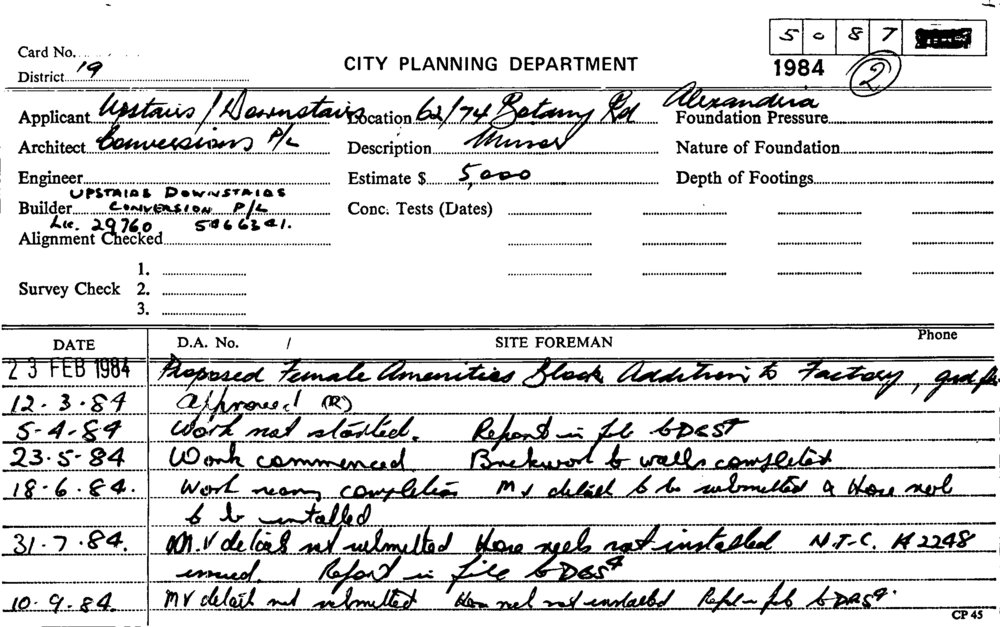 5 0 8 7
Card No.
District 19
CITY PLANNING DEPARTMENT
1984 2
Applicant Upstairs / Downstairs Location 62/74 Botany Rd Alexandria
Foundation Pressure
Architect Conversions P/L Description Minor Nature of Foundation
Engineer Estimate $ 5,000 Depth of Footings
UPSTAIRS DOWNSTAIRS
Builder CONVERSION P/L Conc. Tests (Dates)
Lic. 29760
Alignment Checked
1.
Survey Check 2.
3.
DATE D.A. No. / SITE FOREMAN Phone
23 FEB 1984 Proposed Female Amenities Block Addition to Factory, grd
12.3.84 Approved (R)
5-4-84 Work not started. Report in file to
23.5-84 Work commenced Brickwork to walls completed
18.6.84. Work nearing completion MV detail to be submitted & Hose reel
to be installed
31.7.84. M.V details not submitted Hose reels not installed N.T.C. 2248
issued. Report in file to
10.9.84. MV detail not submitted Hose reel not installed
CP 45